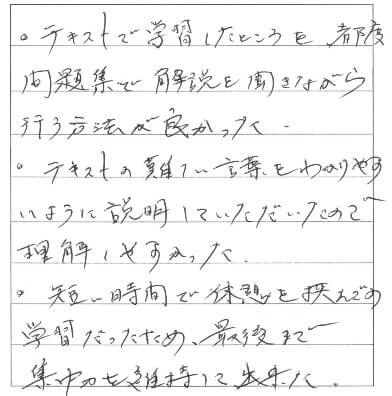 。テキストで学習したところを、都度
問題集で解説を聞きながら
行う方法が良かった。
。テキストの難しい言葉をわかりやす
いように説明していただいたので
理解しやすかった。
。短い時間で休憩を挟んでの
学習だったため、最後まで
集中力を維持して出来た。